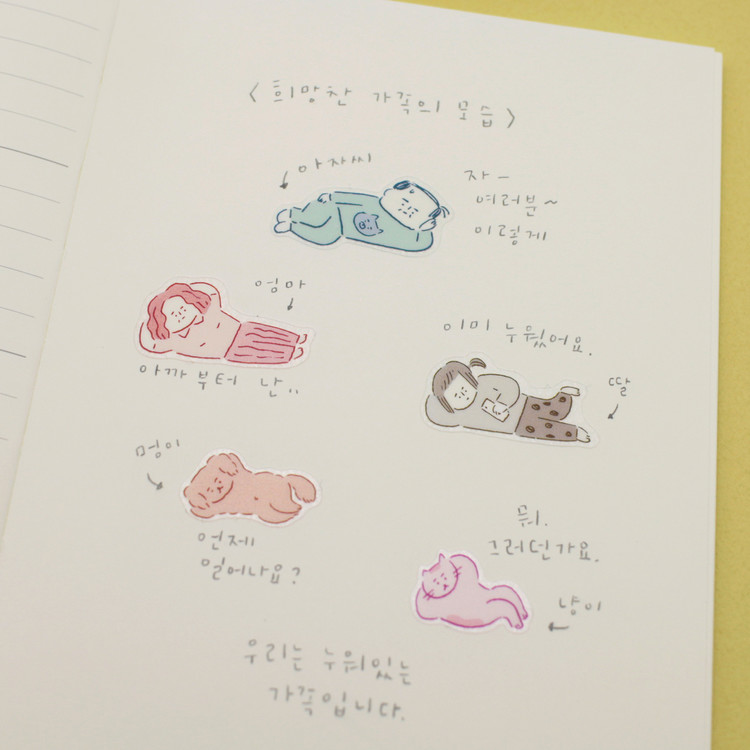 <희망찬 가족의 모습>
아자씨
자-
여러분~
이렇게
엄마
아까부터 난..
이미 누웠어요.
딸
멍이
언제
일어나요?
뭐.
그러던가요.
냥이
우리는 누워있는
가족입니다.